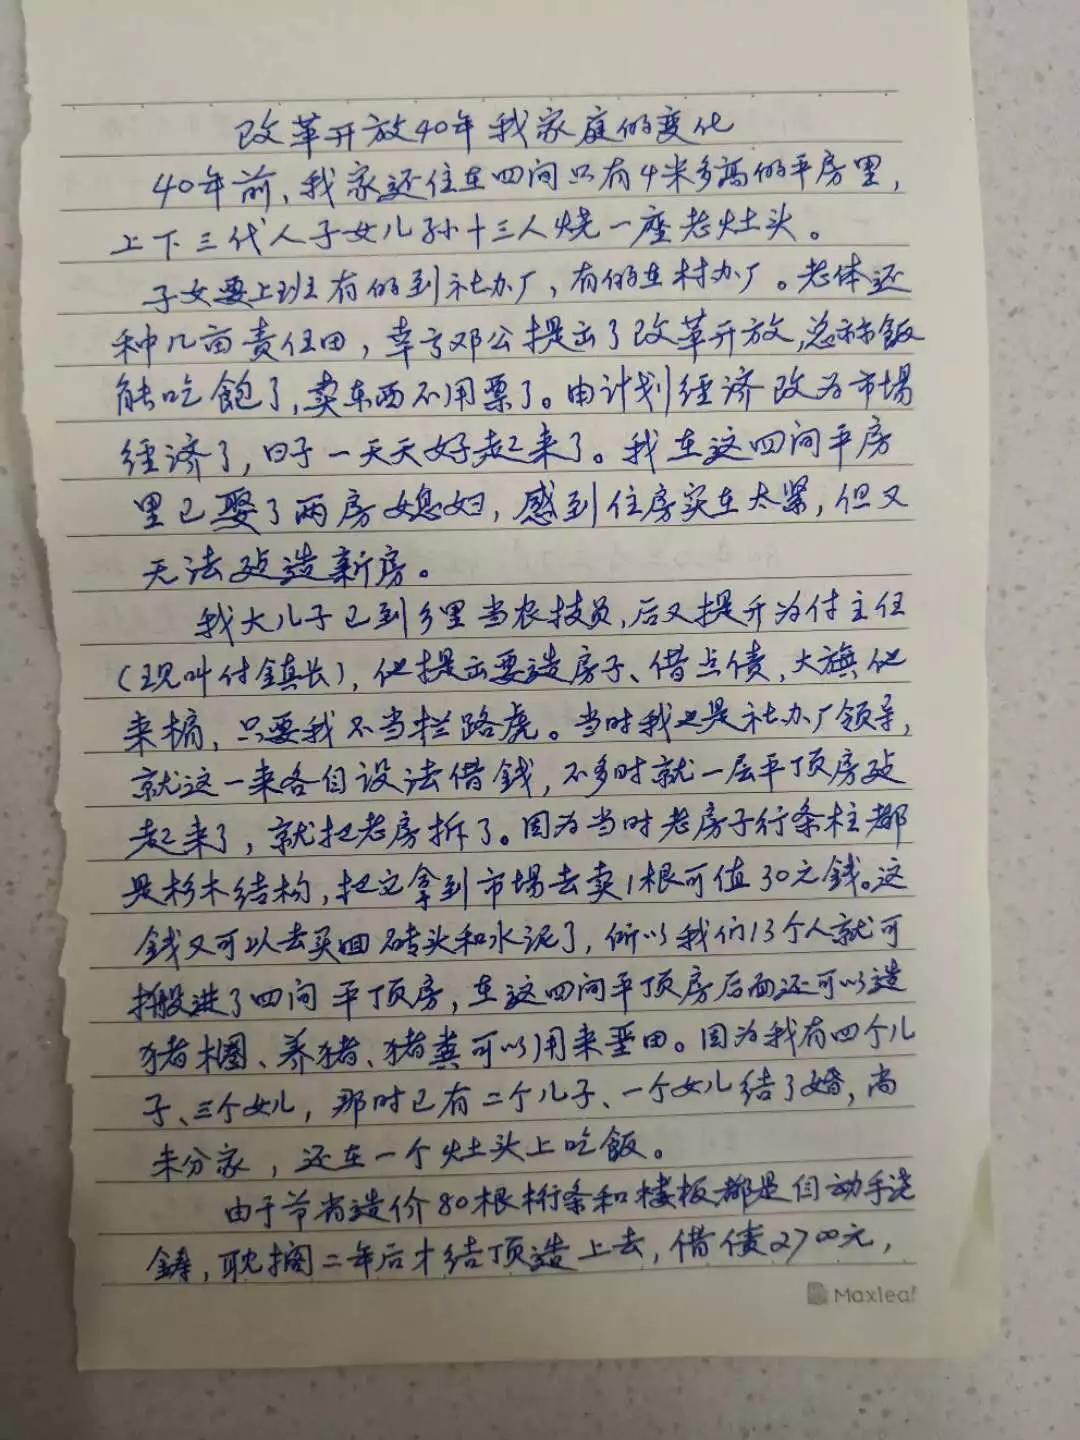 改革开放40年我家庭的变化
40年前，我家还住在四间只有4米多高的平房里，
上下三代人子女儿孙十三人烧一座老灶头。
子女要上班有的到社办厂，有的在村办厂。老体还
种几亩责任田，幸亏邓公提出了改革开放，总称饭
能吃饱了，卖东西不用票了。由计划经济改为市场
经济了，日子一天天好起来了。我在这四间平房
里已娶了两房媳妇，感到住房实在太紧，但又
无法建造新房。
我大儿子已到乡里当农技员，后又提升为付主任
（现叫付镇长），他提出要造房子、借点债，大旗他
来摘，只要我不当拦路虎。当时我也是社办厂领导，
就这一来各自设法借钱，不多时就一层平顶房建
起来了，就把老房拆了。因为当时老房子行条柱都
是杉木结构，把它拿到市场去卖1根可值30元钱。这
钱又可以去买回砖头和水泥了，所以我们13个人就可
搬进了四间平顶房，在这四间平顶房后面还可以造
猪棚、养猪、猪粪可以用来垩田。因为我有四个儿
子、三个女儿，那时已有二个儿子、一个女儿结了婚，尚
未分家，还在一个灶头上吃饭。
由于节省造价80根桁条和楼板都是自动手浇
铸，耽搁二年后才结顶造上去，借债2700元，
Maxleaf